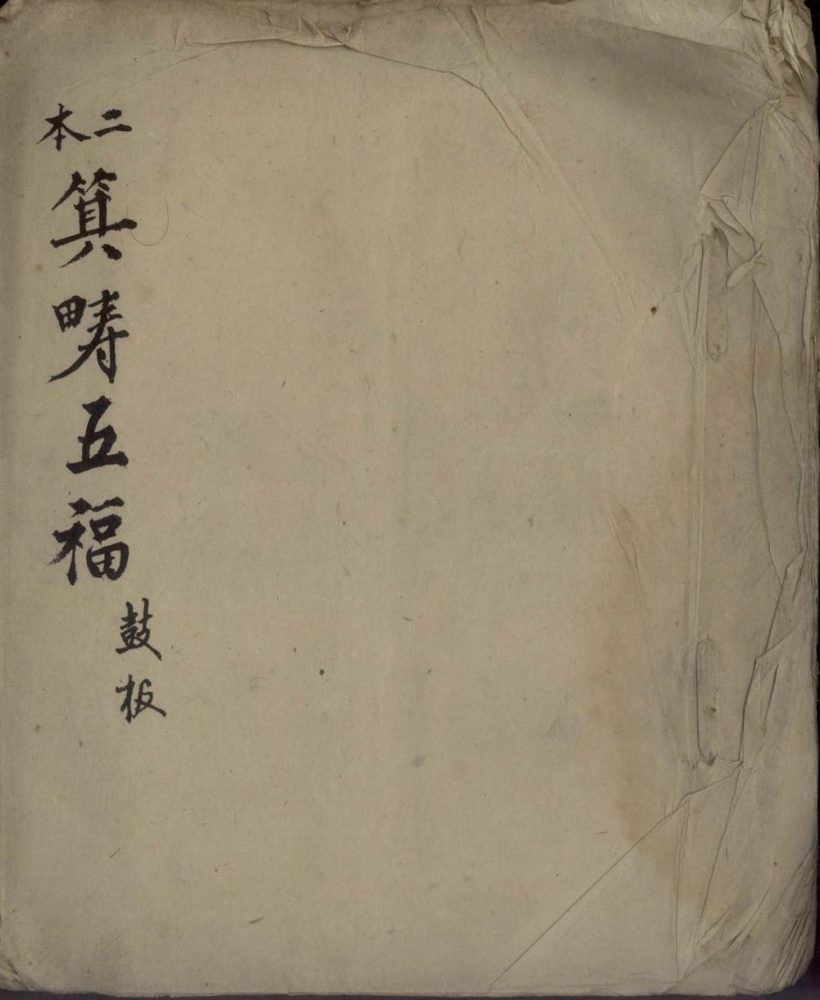 二本
箕畴五福
鼓板